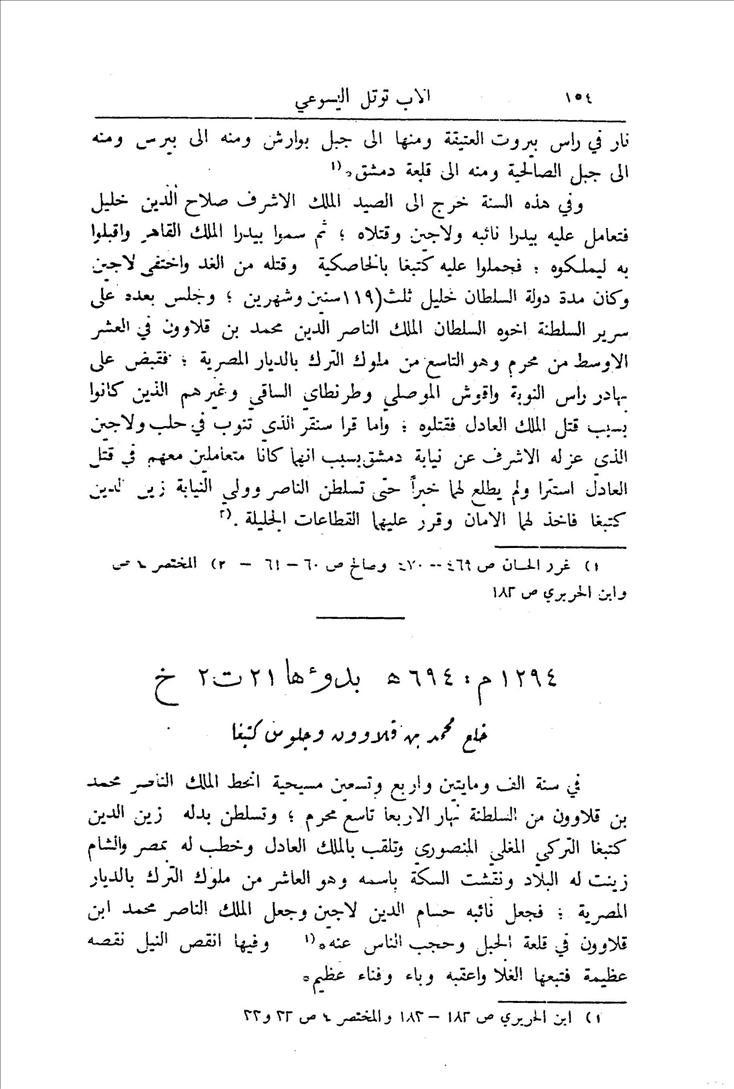 ١٥٤ الاب توتل اليسوعي
نار في راس بيروت العتيقة ومنها الى جبل بوارش ومنه الى بيرس ومنه
الى جبل الصالحية ومنه الى قلعة دمشق.(١
وفي هذه السنة خرج الى الصيد الملك الاشرف صلاح الدين خليل
فتعامل عليه بيدرا نائبه ولاجين وقتلاه ؛ ثم سموا بيدرا الملك القاهر واقبلوا
به ليملكوه ؛ فحملوا عليه كتبغا بالخاصكية وقتله من الغد واختفى لاجين
وكان مدة دولة السلطان خليل ثلث(١١٩سنين وشهرين ؛ وجلس بعده على
سرير السلطنة اخوه السلطان الملك الناصر الدين محمد بن قلاوون في العشر
الاوسط من محرم وهو التاسع من ملوك الترك بالديار المصرية ؛ فقبض على
بهادر راس النوبة واقوش الموصلي وطرنطاي الساقي وغيرهم الذين كانوا
بسبب قتل الملك العادل فقتلوه ؛ واما قرا سنقر الذي تنوب في حلب ولاجين
الذي عزله الاشرف عن نيابة دمشق بسبب انهما كانا متعاملين معهم في قتل
العادل استترا ولم يطلع لهما خبراً حتى تسلطن الناصر وولي النيابة زين الدين
كتبغا فاخذ لهما الامان وقرر عليهما القطاعات الجليلة .(٢
١) غرر الحسان ص ٤٦٩ -- ٤٧٠ وصالح ص ٦٠ – ٦١ – ٢) المختصر ٤ ص
وابن الحريري ص ١٨٢
١٢٩٤ م : ٦٩٤ ھ بدوءها ٢١ ت٢ خ
خلع محمد بن قلاوون وجلوس كتبغا
في سنة الف ومايتين واربع وتسعين مسيحية انحط الملك الناصر محمد
بن قلاوون من السلطنة نهار الاربعا تاسع محرم ؛ وتسلطن بدله زين الدين
كتبغا التركي المغلي المنصوري وتلقب بالملك العادل وخطب له بمصر والشام
زينت له البلاد ونقشت السكة باسمه وهو العاشر من ملوك الترك بالديار
المصرية ؛ فجعل نائبه حسام الدين لاجين وجعل الملك الناصر محمد ابن
قلاوون في قلعة الجبل وحجب الناس عنه.(١ وفيها انقص النيل نقصه
عظيمة فتبعها الغلا واعقبه وباء وفناء عظيم.
١) ابن الحريري ص ١٨٢ – ١٨٣ والمختصر ٤ ص ٢٢ و٢٣